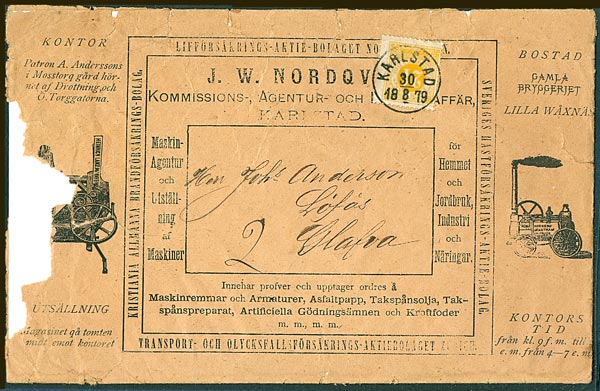 KONTOR
Patron A. Anderssons
i Mosstorg gård hör-
net af Drottning- och
Ö. Torggatorna.
UTSÄLLNING
Magasinet på tomten
midt emot kontoret
LIFFÖRSÄKRINGS-AKTIE-BOLAGET
KRISTIANIA ALLMÄNNA BRANDFÖRSÄKRINGS-BOLAG.
J. W. NORDQV
KOMMISSIONS-, AGENTUR- OCH AFFÄR,
KARLSTAD.
KARLSTAD
30
18 8 79
Maskin-
Agentur
och
Utställ-
ning
af
Maskiner
Herr Johs Anderson
Löfås
2 Olafva
för
Hemmet
och
Jordbruk,
Industri
och
Näringar.
Innehar profver och upptager ordres å
Maskinremmar och Armaturer, Asfaltpapp, Takspånsolja, Tak-
spånspreparat, Artificiella Gödningsämnen och Kraftfoder
m. m., m. m.
TRANSPORT- OCH OLYCKSFALLSFÖRSÄKRINGS-AKTIEBOLAGET
SVERIGES HÄSTFÖRSÄKRINGS-AKTIE-BOLAG.
BOSTAD
GAMLA
BRYGGERIET
LILLA WÄXNÄS
KONTORS
TID
från kl. 9 f. m. till
e. m. från 4—7 e. m.